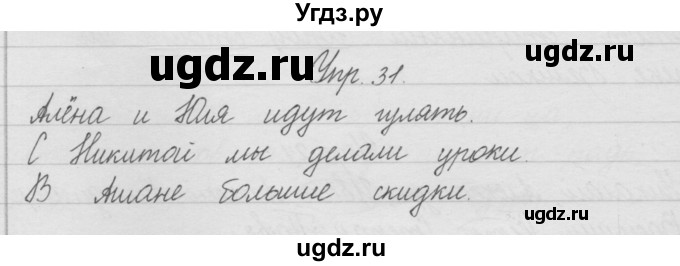 Угдз.ру
ugdz.ru ugdz.ru
Упр. 31.
Алёна и Юля идут гулять.
ugdz.ru
С Никитой мы делали уроки.
В Ашане большие скидки.
ugdz.ru ugdz.ru
ugdz.ru